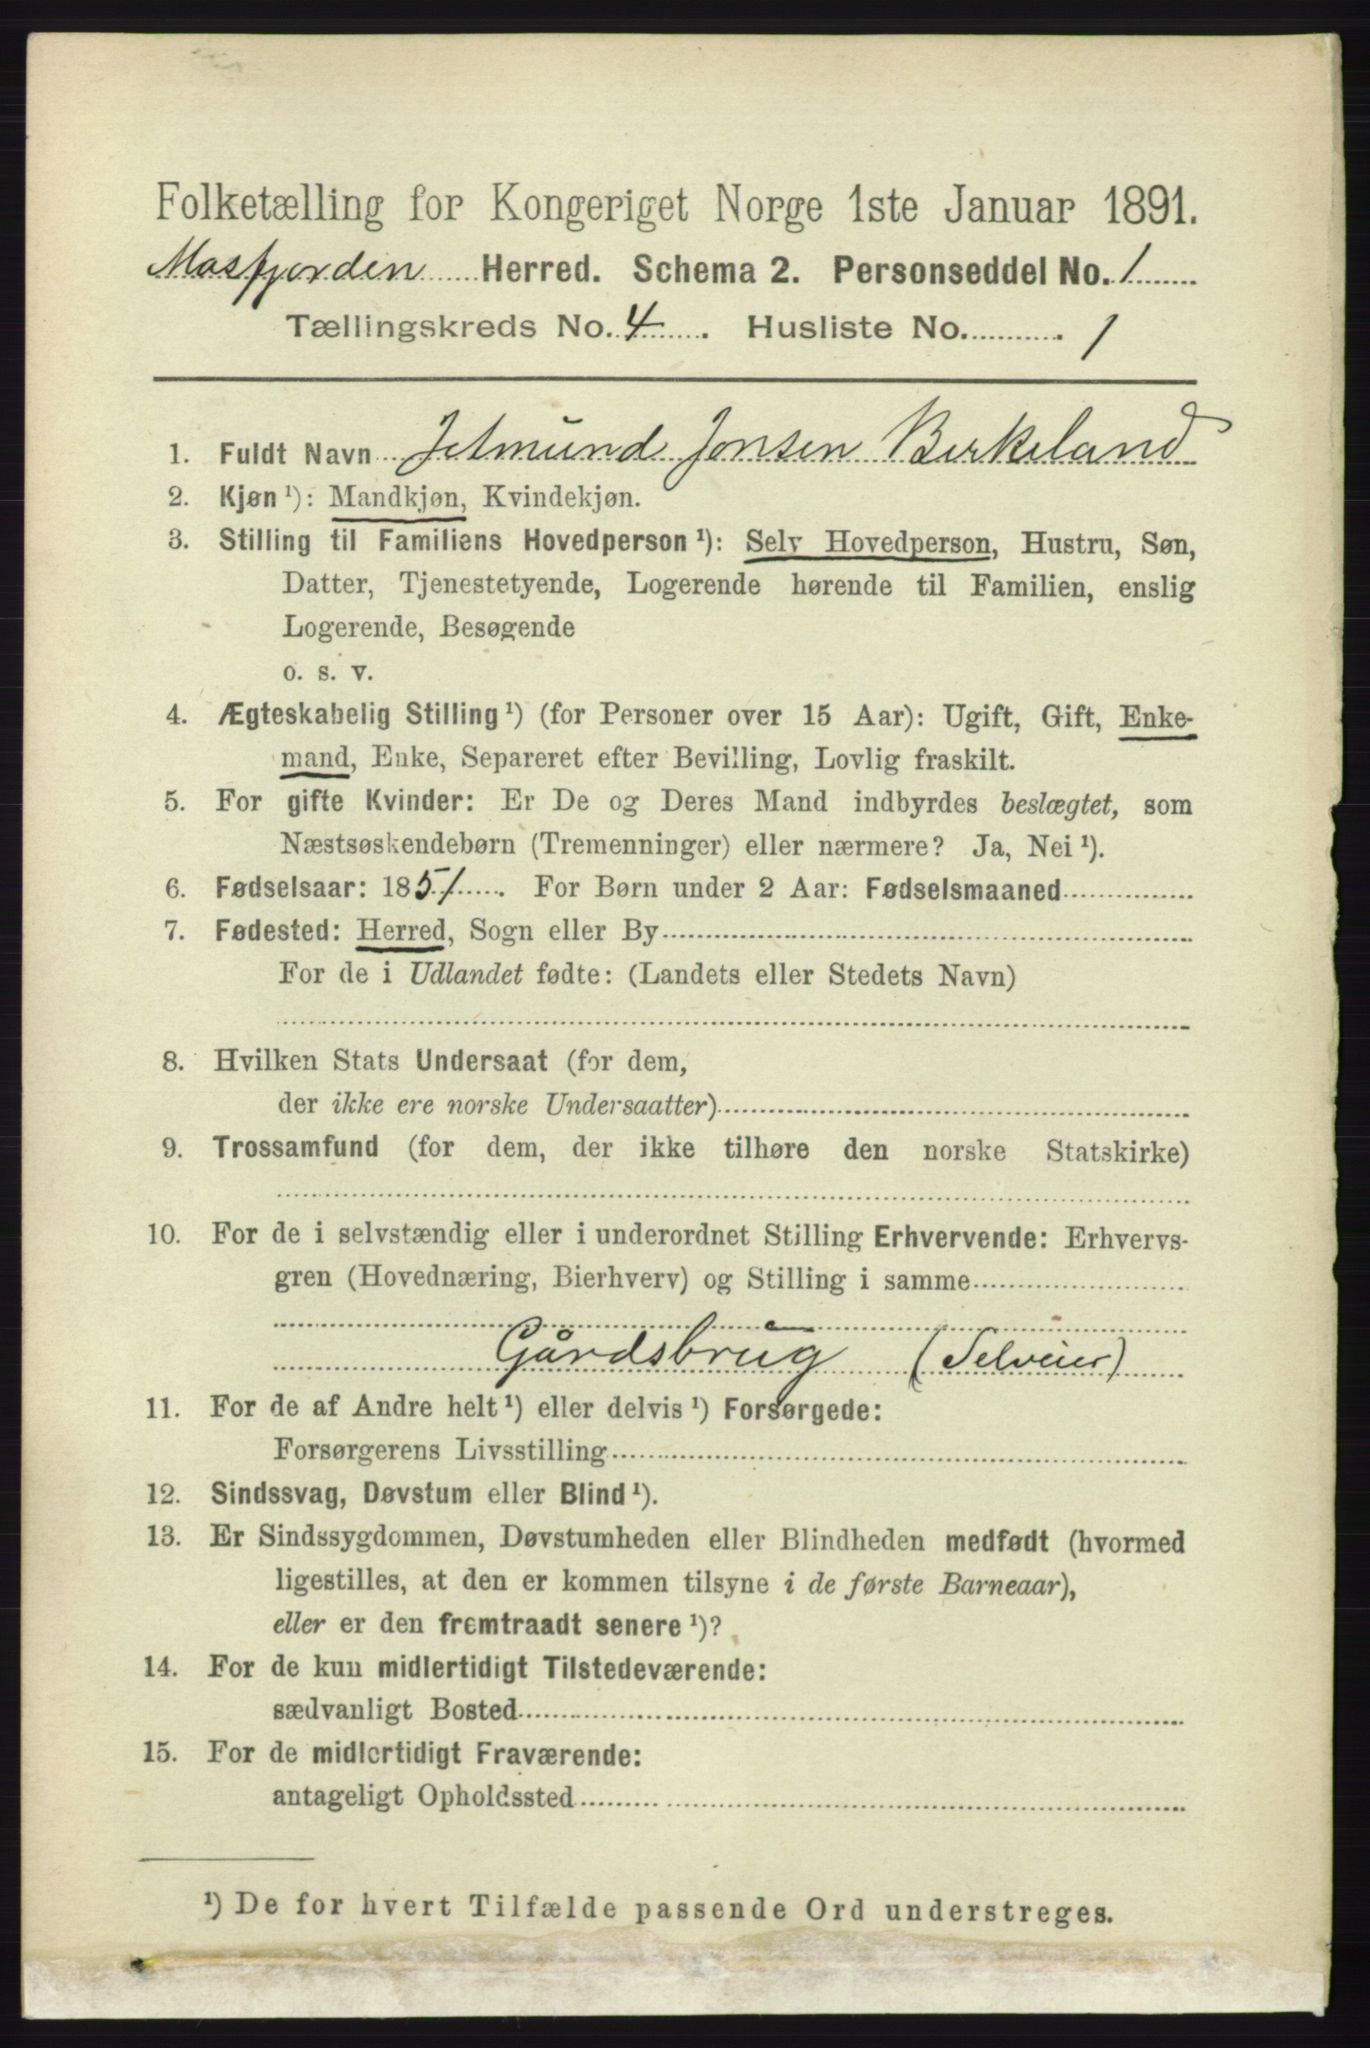 Folketælling for Kongeriget Norge 1ste Januar 1891.
Masfjorden Herred. Schema 2. Personseddel No. 1
Tællingskreds No. 4. Husliste No. 1
1. Fuldt Navn Jetmund Jonsen Birkeland
2. Kjøn ¹): Mandkjøn, Kvindekjøn.
3. Stilling til Familiens Hovedperson ¹): Selv Hovedperson, Hustru, Søn,
Datter, Tjenestetyende, Logerende hørende til Familien, enslig
Logerende, Besøgende
o. s. v.
4. Ægteskabelig Stilling ¹) (for Personer over 15 Aar): Ugift, Gift, Enke-
mand, Enke, Separeret efter Bevilling, Lovlig fraskilt.
5. For gifte Kvinder: Er De og Deres Mand indbyrdes beslægtet, som
Næstsøskendebørn (Tremenninger) eller nærmere? Ja, Nei ¹).
6. Fødselsaar: 1851. For Børn under 2 Aar: Fødselsmaaned
7. Fødested: Herred, Sogn eller By
For de i Udlandet fødte: (Landets eller Stedets Navn)
8. Hvilken Stats Undersaat (for dem,
der ikke ere norske Undersaatter)
9. Trossamfund (for dem, der ikke tilhøre den norske Statskirke)
10. For de i selvstændig eller i underordnet Stilling Erhvervende: Erhvervs-
gren (Hovednæring, Bierhverv) og Stilling i samme
Gårdsbrug (Selveier)
11. For de af Andre helt ¹) eller delvis ¹) Forsørgede:
Forsørgerens Livsstilling
12. Sindssvag, Døvstum eller Blind ¹).
13. Er Sindssygdommen, Døvstumheden eller Blindheden medfødt (hvormed
ligestilles, at den er kommen tilsyne i de første Barneaar),
eller er den fremtraadt senere ¹)?
14. For de kun midlertidigt Tilstedeværende:
sædvanligt Bosted
15. For de midlertidigt Fraværende:
antageligt Opholdssted
¹) De for hvert Tilfælde passende Ord understreges.